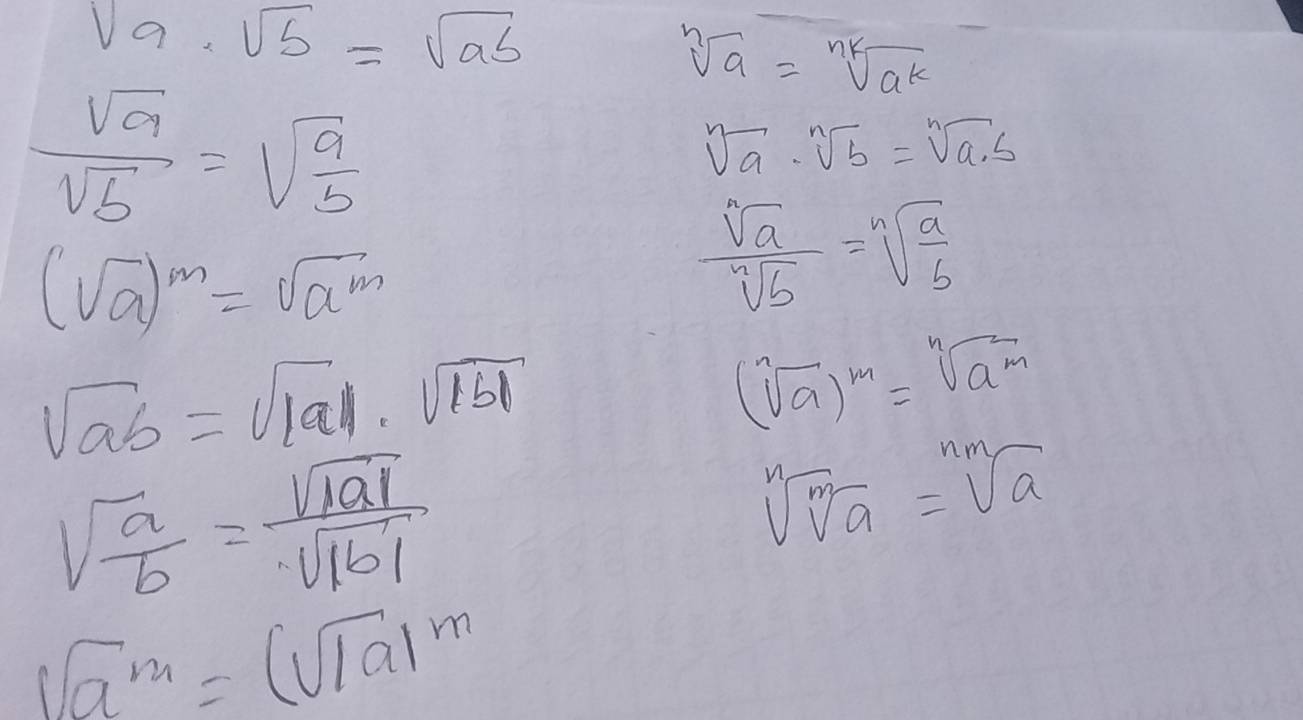 √a · √b = √ab
√a / √b = √(a/b)
(√a)^m = √a^m
√ab = √|a| · √|b|
√(a/b) = √|a| / √|b|
√a^m = (√|a|^m
ⁿ√a = ⁿᵏ√a^k
ⁿ√a · ⁿ√b = ⁿ√a.b
ⁿ√a / ⁿ√b = ⁿ√(a/b)
(ⁿ√a)^m = ⁿ√a^m
ⁿ√ᵐ√a = ⁿᵐ√a